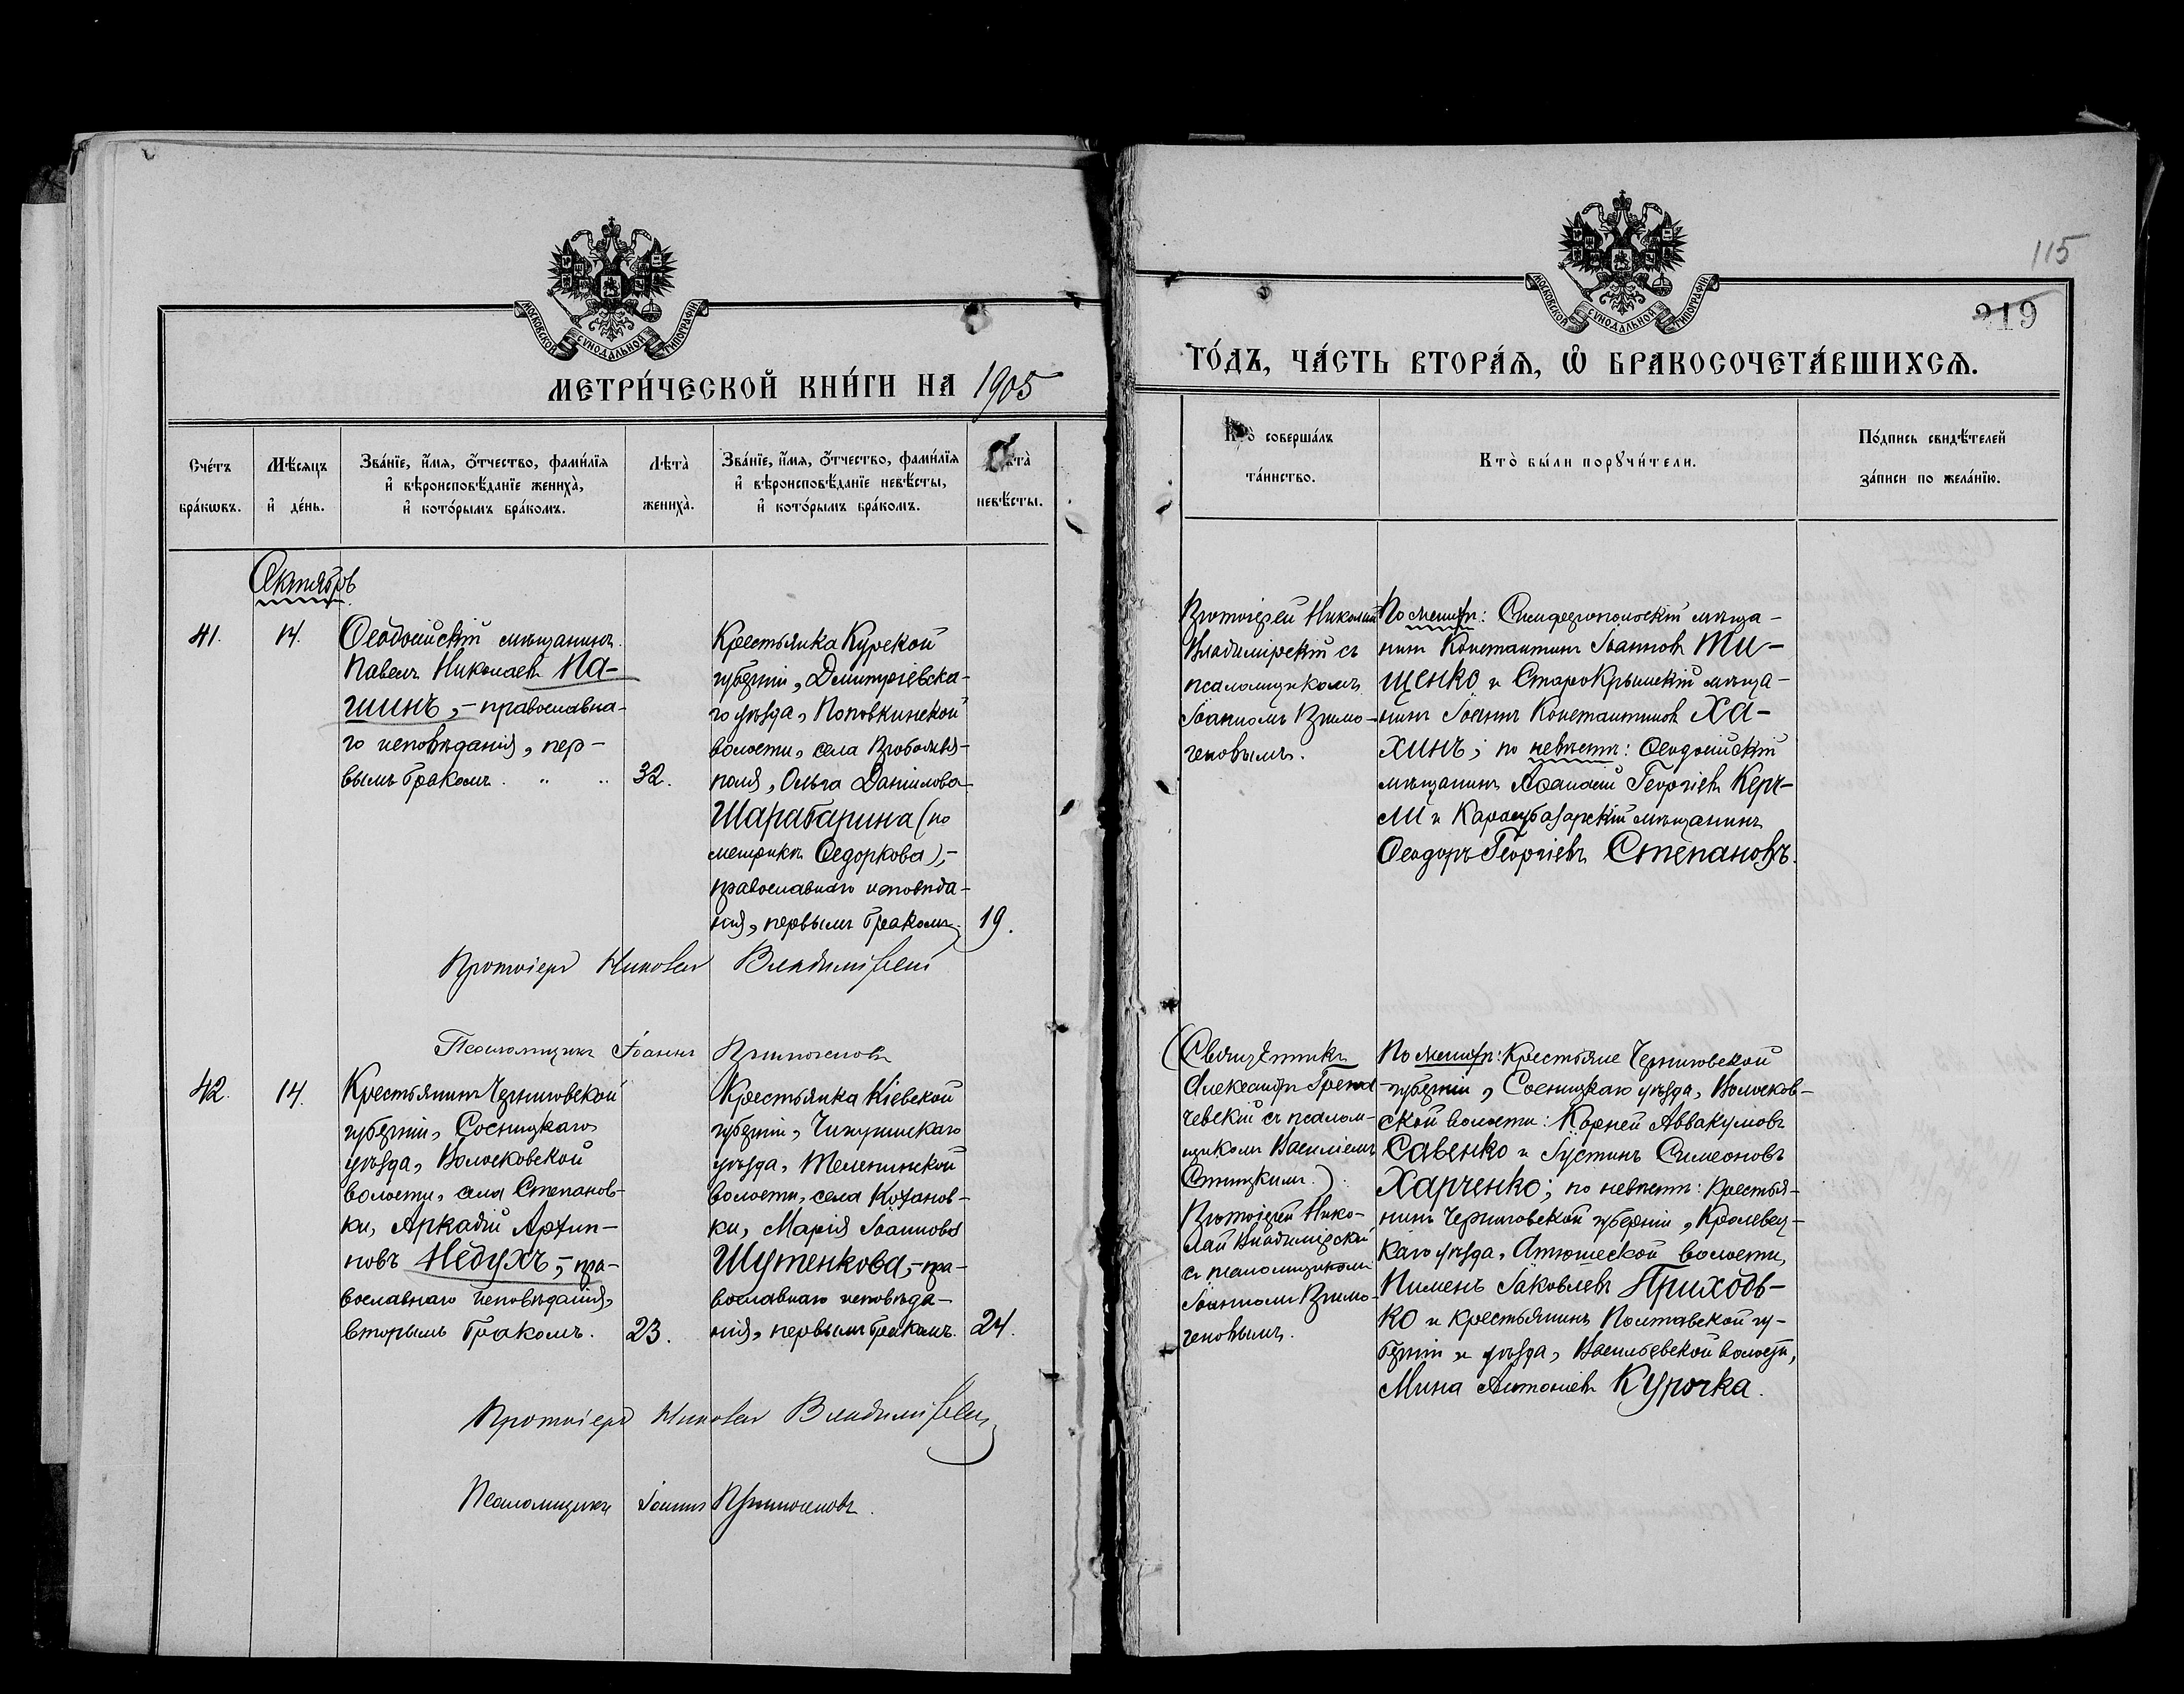 МОСКОВСКОЙ СѴНОДАЛЬНОЙ ТИПОГРАФІИ
МЕТРИ́ЧЕСКОЙ КНИ́ГИ НА 1905
Сче́тъ бра́кѡвъ.
Мѣ́сяцъ и҆ де́нь.
Зва́нїе, и҆́мя, ѻ҆́тчество, фами́лїя
и҆ вѣроисповѣ́данїе жениха̀,
и҆ кото́рымъ бра́комъ.
Лѣта̀ жениха̀.
Зва́нїе, и҆́мя, ѻ҆́тчество, фами́лїя
и҆ вѣроисповѣ́данїе невѣ́сты,
и҆ кото́рымъ бра́комъ.
Лѣта̀ невѣ́сты.
Октябрь
41.
14.
Ѳеодосійскій мѣщанинъ
Павелъ Николаевъ Па-
шинъ,- православна-
го исповѣданія, пер-
вымъ бракомъ. " "
32.
Крестьянка Курской
губерніи, Дмитріевска-
го уѣзда, Поповкинской
волости, села
поля, Ольга Даніилова
Шарабарина (по
метрикѣ Ѳедоркова),-
православнаго исповѣда-
нія, первымъ бракомъ.
19.
Протоіерей Николай Владимірскій
Псаломщикъ Іоаннъ
42.
14.
Крестьянинъ Черниговской
губерніи, Сосницкаго
уѣзда, Волосковской
волости, села Степанов-
ки, Аркадій Архип-
повъ Недухъ,- пра-
вославнаго исповѣданія,
вторымъ бракомъ.
23.
Крестьянка Кіевской
губерніи, Чигиринскаго
уѣзда, Телепинской
волости, села Кохановки-
ки, Марія Іоаннова
Шутенкова,- пра-
вославнаго исповѣда-
нія, первымъ бракомъ.
24.
Протоіерей Николай Владимірскій
Псаломщикъ Іоаннъ
115
219
МОСКОВСКОЙ СѴНОДАЛЬНОЙ ТИПОГРАФІИ
ГО́ДЪ, ЧА́СТЬ ВТОРА́Ѧ, Ѽ БРАКОСОЧЕТА́ВШИХСѦ.
Кто̀ соверша́лъ
та́инство.
Кто̀ бы́ли порꙋчи́тели.
По́дпись свидѣ́телей
за́писи по жела́нїю.
Протоіерей Николай
Владимірскій съ
псаломщикомъ
Іоанномъ
По женихѣ: Симферопольскій мѣща-
нинъ Константинъ Іоанновъ Ти-
щенко и СтароКрымскій мѣща-
нинъ Іоаннъ Константиновъ Ха-
хинъ; по невѣстѣ: Ѳеодосійскій
мѣщанинъ Аѳанасій Георгіевъ Керч-
ли и Карасубазарскій мѣщанинъ
Ѳеодоръ Георгіевъ Степановъ.
(Священникъ
Александръ
чевскій съ псалом-
щикомъ Василіемъ
Спицкимъ.)
Протоіерей Нико-
лай Владимірскій
съ псаломщикомъ
Іоанномъ
По женихѣ: Крестьяне Черниговской
губерніи, Сосницкаго уѣзда, Волосков-
ской волости: Корней Аввакумовъ
Савенко и Іустинъ Симеоновъ
Харченко; по невѣстѣ: крестья-
нинъ Черниговской губерніи, Кролевец-
каго уѣзда, Атюшеской волости,
Пименъ Іаковлевъ Приходь-
ко и крестьянинъ Полтавской гу-
берніи и уѣзда, Васильевской волости,
Мина Антоніевъ Курочка.